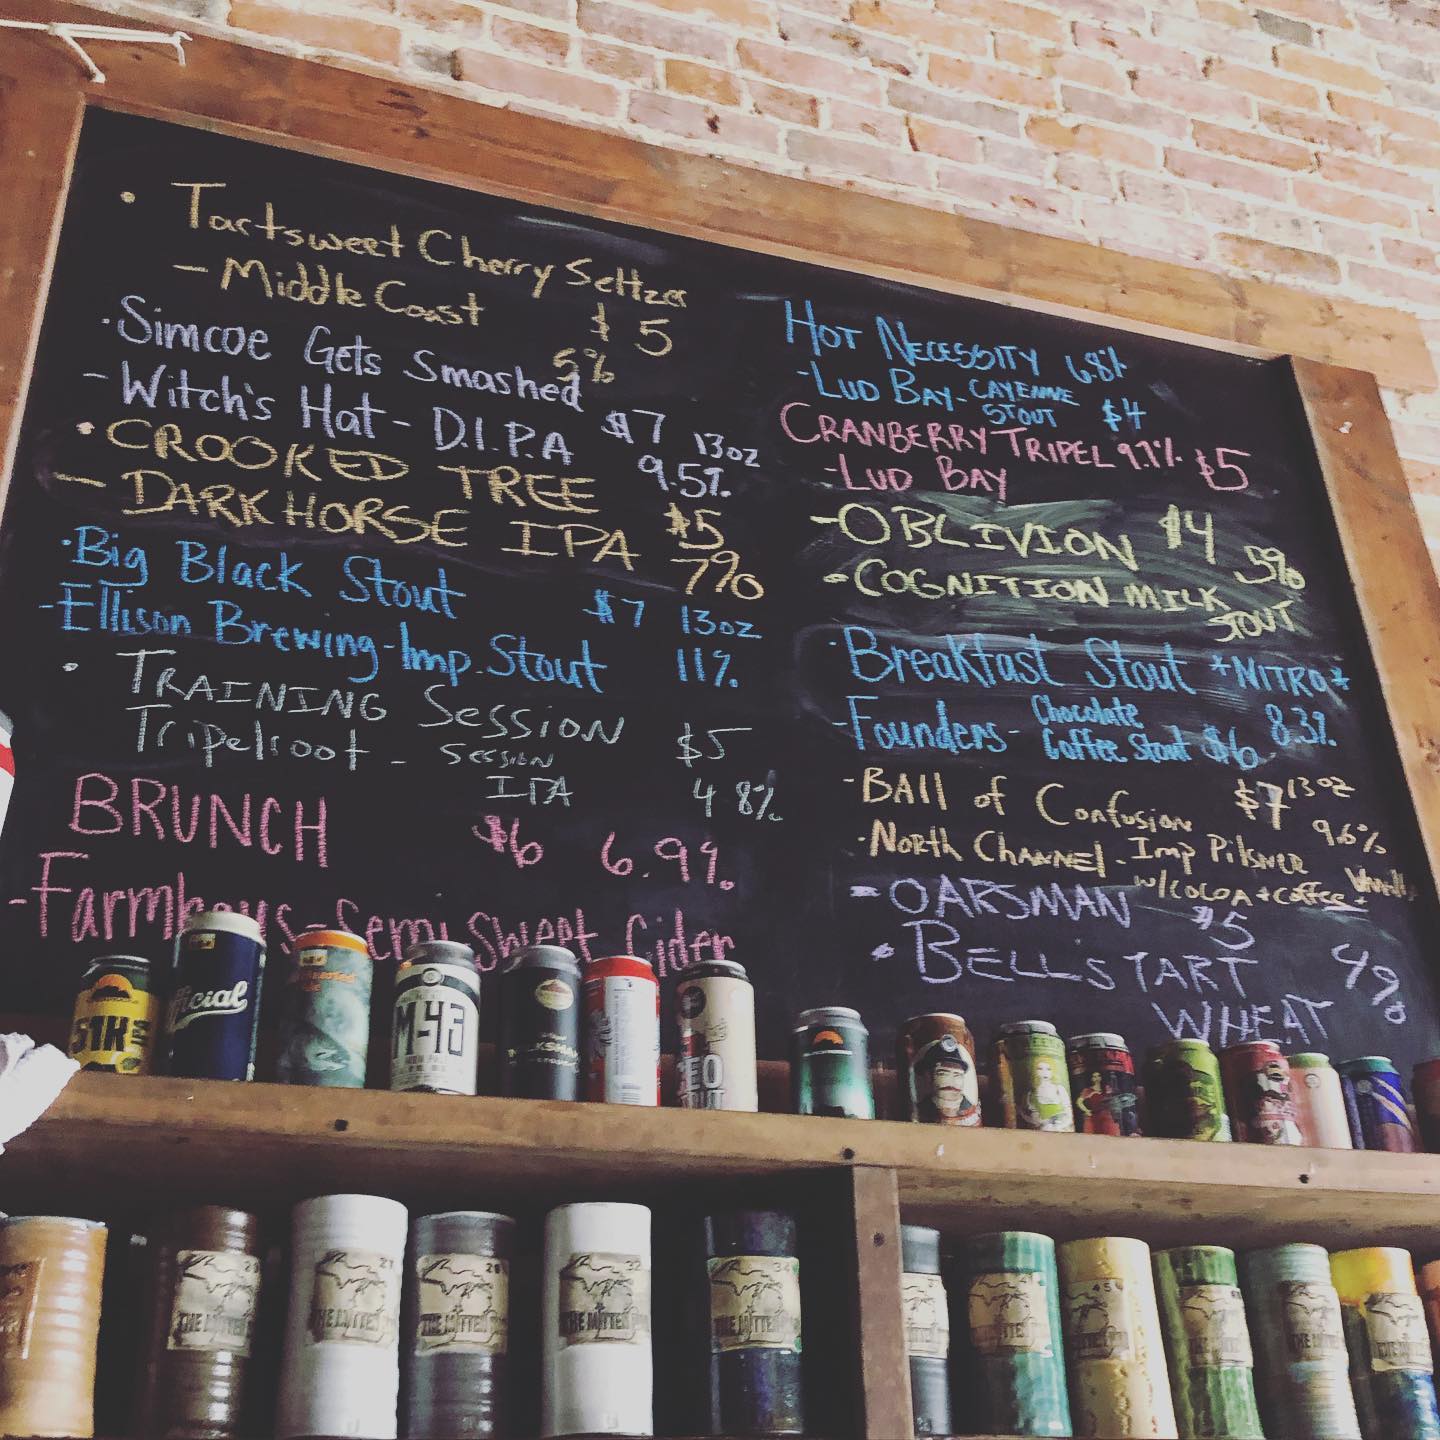 • Tartsweet Cherry Seltzer
- Middle Coast $5
5%
• Simcoe Gets Smashed
- Witch's Hat - D.I.P.A $7 13oz
9.5%
• CROOKED TREE
- DARK HORSE IPA $5
7%
• Big Black Stout $7 13oz
- Ellison Brewing - Imp. Stout 11%
• TRAINING SESSION
Tripelroot - SESSION IPA $5
4.8%
BRUNCH $6 6.9%
- Farmhaus - Semi Sweet Cider
HOT NECESSITY 6.8%
- LUD BAY - CAYENNE STOUT $4
CRANBERRY TRIPEL 9.1% $5
- LUD BAY
- OBLIVION $4 5%
- COGNITION MILK STOUT
• Breakfast Stout *NITRO*
- Founders - Chocolate Coffee Stout $6 8.3%
- BAll of Confusion $7 13oz
• NORTH CHANNEL - Imp Pilsner 9.6%
w/COCOA + Coffee +
- OARSMAN $5
• BELL'S TART WHEAT 4%
51K
M-43
THE MITTEN
29
THE MITTEN
27
THE MITTEN
THE MITTEN
32
THE MITTEN
34
THE MITTEN
THE MITTEN